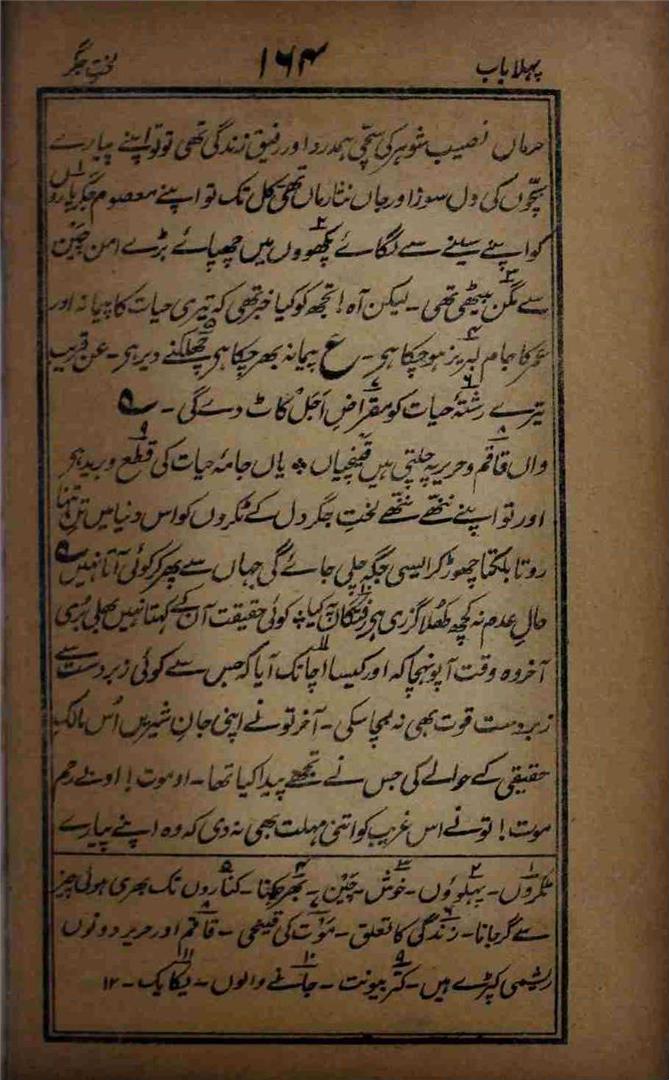 پہلا باب ۱۶۴ لختِ جگر
حرماں نصیب شوہر کی سچّی ہمدرد اور رفیق زندگی تھی تو تو اپنے پیارے
بچّوں کی دل سوز اور جاں نثار ماں تھی کل تک تو اپنے معصوم جگر پاروں۱
کو اپنے سینے سے لگائے پکھووں۲ میں چھپائے بڑے امن چَین
سے مگن۳ بیٹھی تھی۔ لیکن آہ! تجھ کو کیا خبر تھی کہ تیری حیات کا پیمانہ اور
عمر کا جام لبریز۴ ہو چکا ہی۔ ع پیمانہ بھر چکا ہی چھلکنے۵ دیر ہی۔ عن قریب
تیرے رشتۂ۶ حیات کو مقراضِ۷ اجل کاٹ دے گی۔ ؎
واں قاقم۸ و حریر پہ چلتی ہیں قینچیاں * یاں جامۂ حیات کی قطع۹ و برید ہی
اور تو اپنے ننھّے ننھّے لختِ جگر دل کے ٹکروں کو اس دنیا میں تنِ تنہا
روتا بلکتا چھوڑ کر ایسی جگہ چلی جائے گی جہاں سے پھر کر کوئی آتا نہیں ؎
حالِ عدم نہ کچھ کھُلا گزری ہی رفتگاں۱۰ پہ کیا * کوئی حقیقت آن کے کہتا نہیں بھلی بُری
آخر وہ وقت آ پونہچا کہ اور کیسا اچانک۱۱ آیا کہ جس سے کوئی زبردست سے
زبردست قوت بھی نہ بچا سکی۔ آخر تو نے اپنی جانِ شیریں اُس مالکِ
حقیقی کے حوالے کی جس نے تجھے پیدا کیا تھا۔ او موت! او بے رحم
موت! تو نے اس غریب کو اتنی مہلت بھی نہ دی کہ وہ اپنے پیارے
۱ ٹکڑوں۔ ۲ پہلوؤں۔ ۳ خوش۔ چَین۔ ۴ بھر چکنا۔ ۵ کناروں تک بھری ہوئی چیز
سے گر جانا۔ ۶ زندگی کا تعلق۔ ۷ موت کی قینچی۔ ۸ قاقم اور حریر دونوں
ریشمی کپڑے ہیں۔ ۹ کتر بیونت۔ ۱۰ جانے والوں۔ ۱۱ یکایک۔ ۱۲